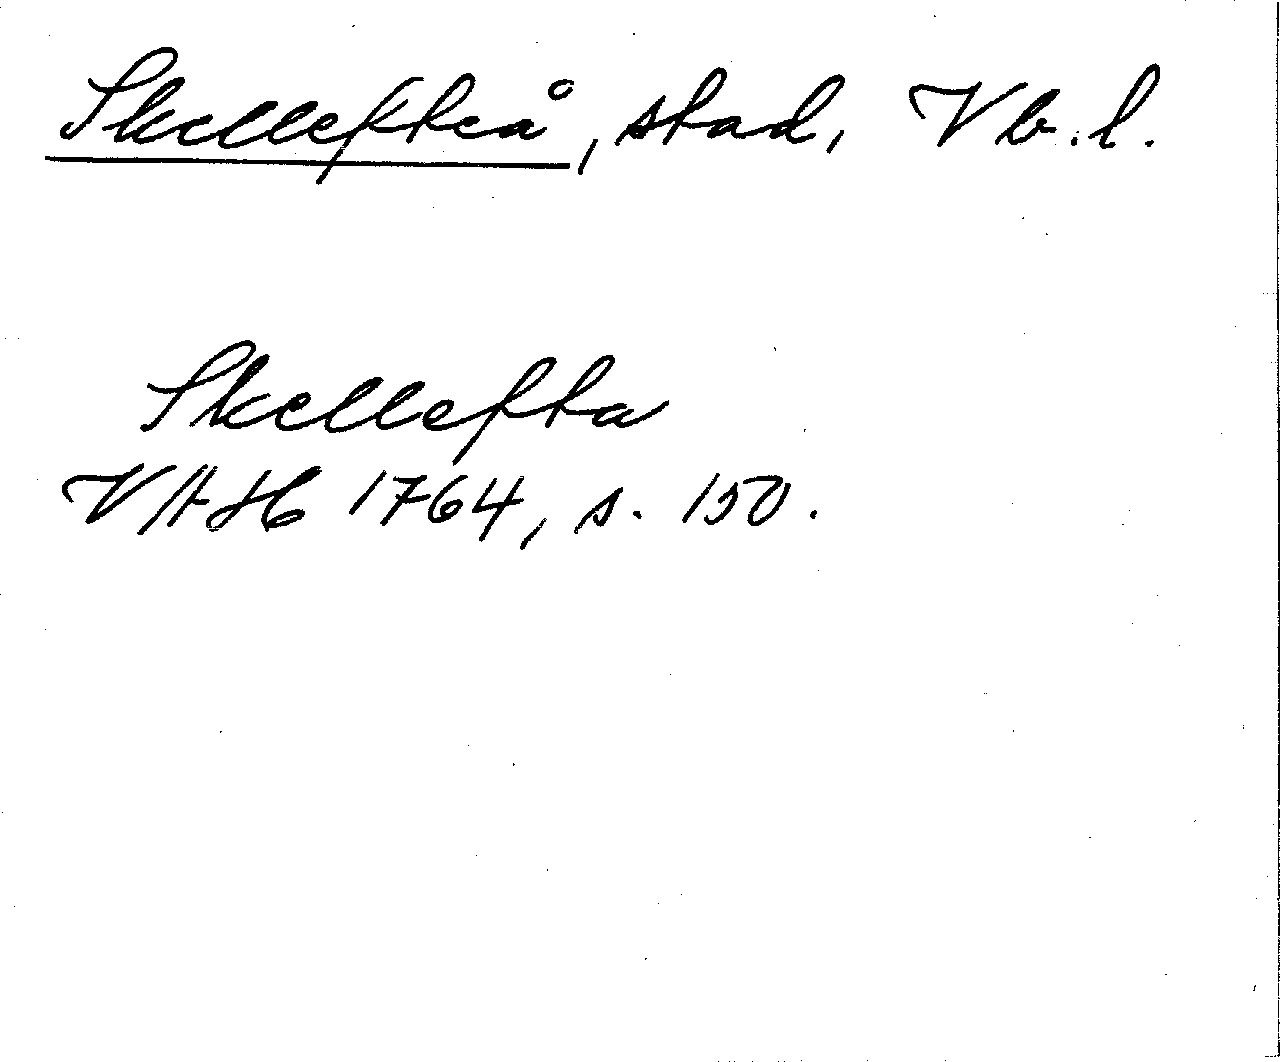 Skellefteå, stad, Vb.l.
Skellefta
VAH 1764, s. 150.